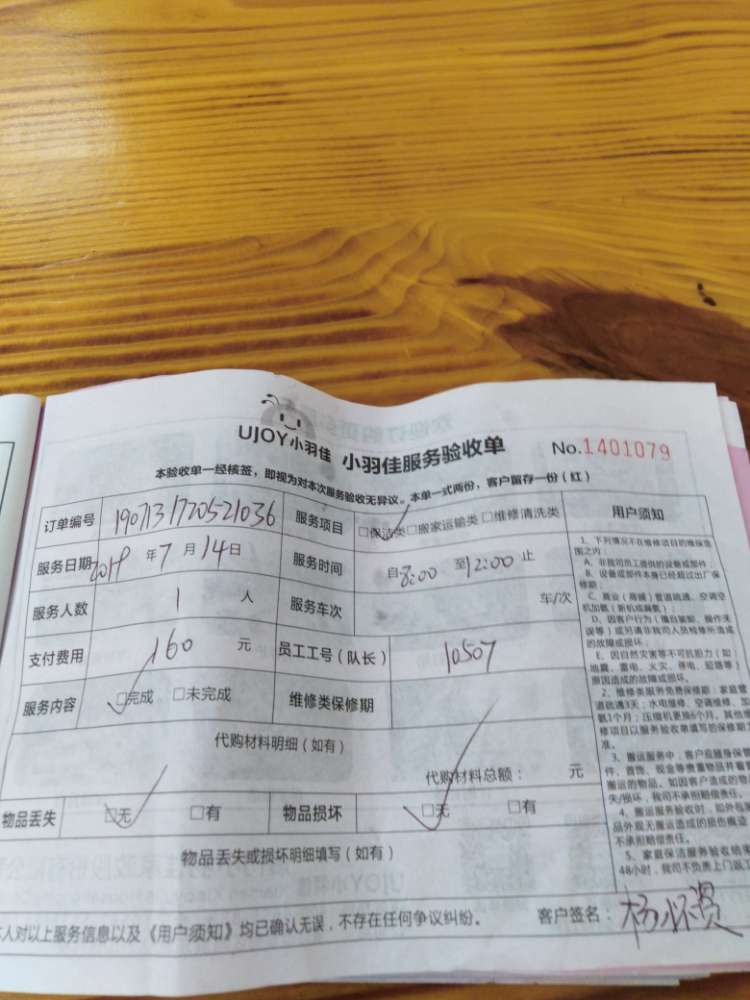 UJOY小羽佳 小羽佳服务验收单 No.1401079
本验收单一经核签，即视为对本次服务验收无异议。本单一式两份，客户留存一份（红）
订单编号 1907131720521036 服务项目 □保洁类□搬家运输类□维修清洗类 用户须知
服务日期 2019年7月14日 服务时间 自8:00至12:00止
服务人数 1人 服务车次 车/次
支付费用 160元 员工工号（队长） 10507
服务内容 □完成 □未完成 维修类保修期
代购材料明细（如有）
代购材料总额： 元
物品丢失 □无 □有 物品损坏 □无 □有
物品丢失或损坏明细填写（如有）
人对以上服务信息以及《用户须知》均已确认无误，不存在任何争议纠纷。 客户签名：杨怀贤
1、下列情况不在维修项目的维保范
围之内：
A、非我司员工提供的设备或部件
B、设备或部件本身已经超过出厂保
修期
C、商业（商铺）管道疏通、空调空
机加氨（新机或漏氨）
D、因客户行为
误等）或另请非我司人员检修所造成
的故障或损坏
E、因自然灾害等不可抗力（如
地震、雷电、火灾、停电、短路等）
原因造成的故障或损坏。
2、维修类服务免费保修期：家庭管
道疏通3天；水电维修、空调维修、加
氨1个月；压缩机更换6个月。其他维
修项目以服务验收单填写的保修期为
准。
3、搬运服务中，客户应随身保管
件、首饰、现金等贵重物品并看管
搬运的物品。如因客户造成的物
失/损坏，我司不承担赔偿责任。
4、搬运服务验收时，如外包
品外观无搬运造成的损伤痕迹
不承担赔偿责任。
5、家庭保洁服务验收结束
48小时，我司不负责上门返工